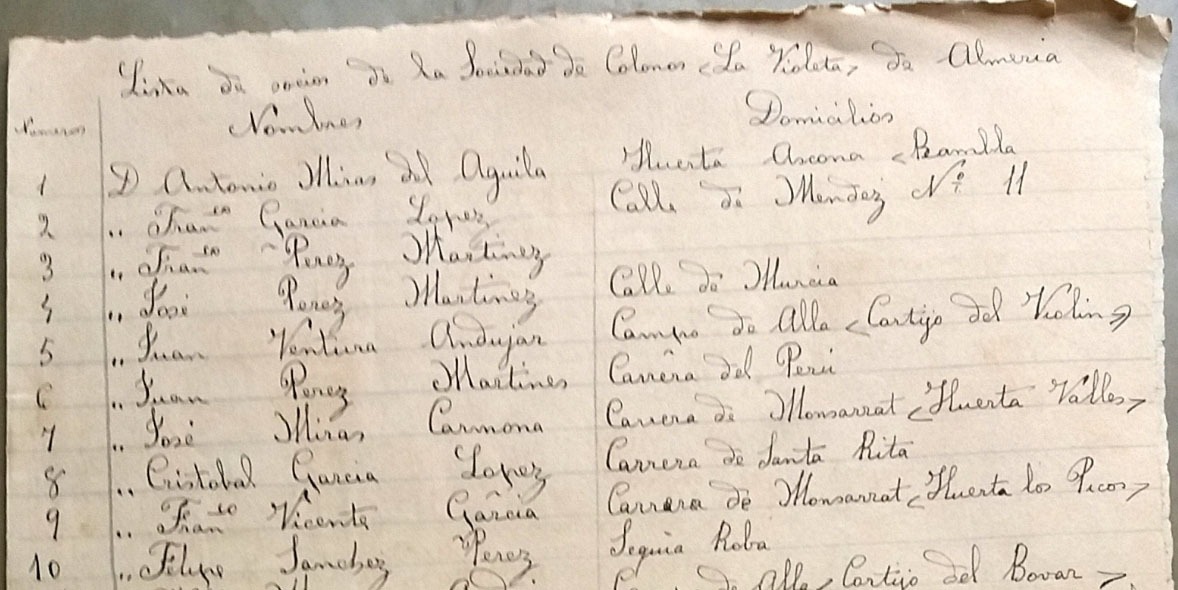 Lista de socios de la Sociedad de Colonos <La Violeta> de Almeria
Numeros Nombres Domicilios
1 D Antonio Miras del Aguila Huerta Ascona <Rambla
2 " Fran^co Garcia Lopez Calle de Mendez Nº 11
3 " Fran^co Perez Martinez
4 " José Perez Martinez Calle de Murcia
5 " Juan Ventura Andujar Campo de Alla <Cortijo del Violin>
6 " Juan Perez Martines Carrera del Perú
7 " José Miras Carmona Carrera de Monsarrat <Huerta Valles>
8 " Cristobal Garcia Lopez Carrera de Santa Rita
9 " Fran^co Vicente Garcia Carrera de Monsarrat <Huerta los Picos>
10 " Felipe Sanchez Perez Sequia Roba
de Alla <Cortijo del Bovar>